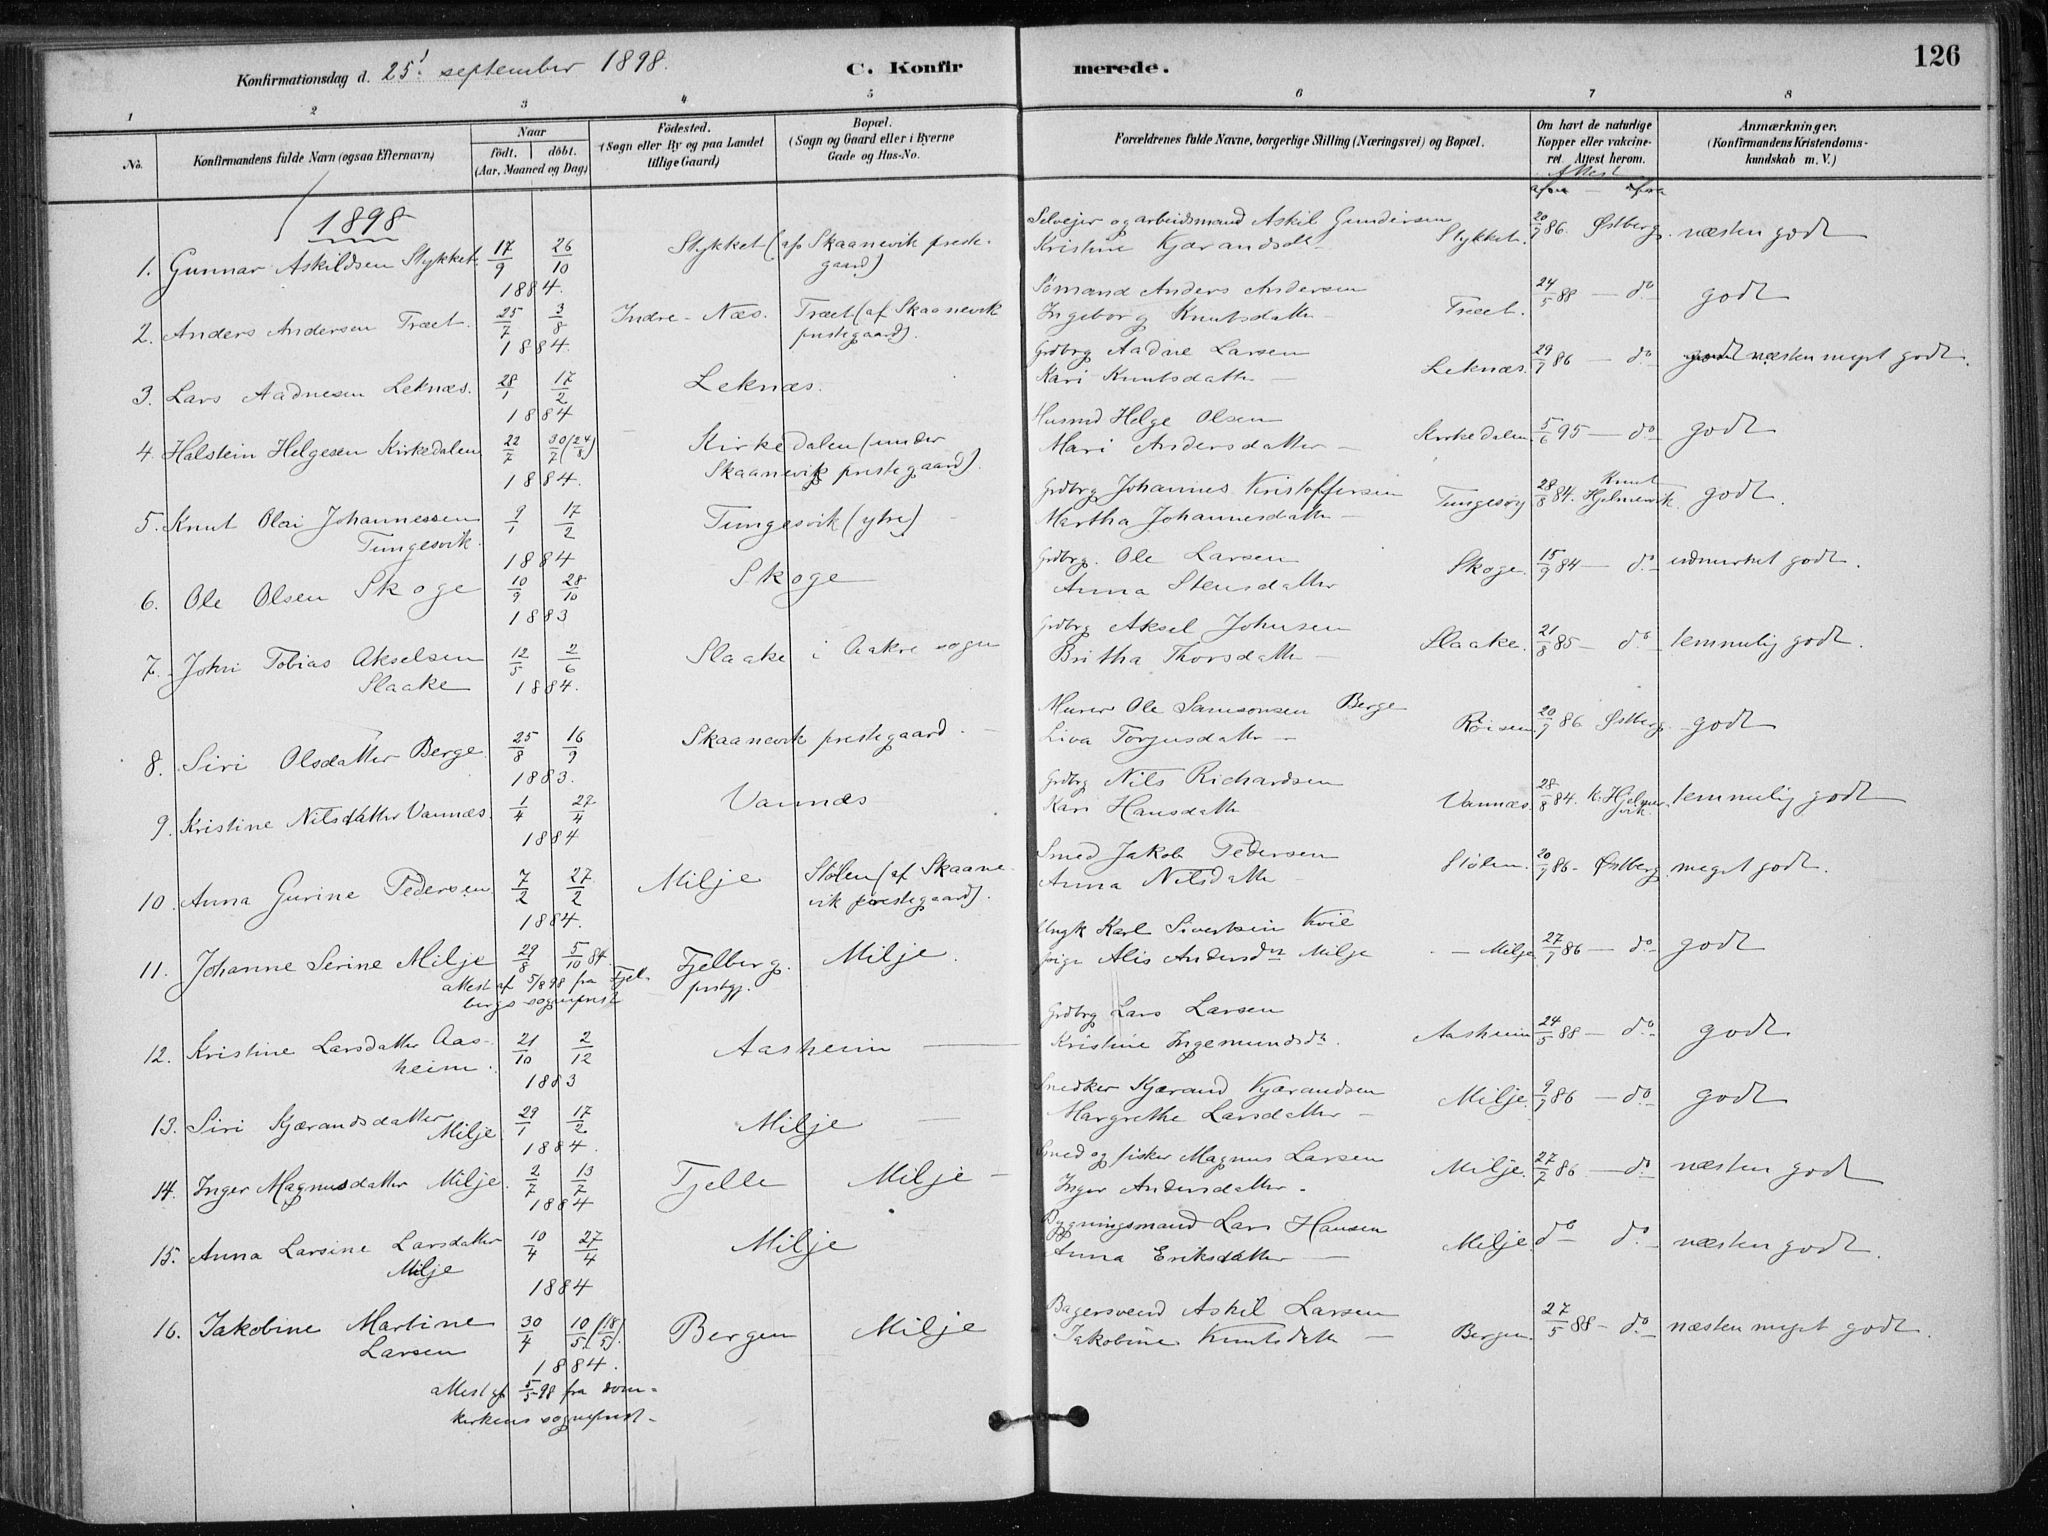 126
Konfirmationsdag d. 25' september 1898. C. Konfirmerede.
1 2 3 4 5 6 7 8
No. Konfirmandens fulde Navn (ogsaa Efternavn) Naar født. døbt. (Aar, Maaned og Dag) Fødested. (Sogn eller By og paa Landet tillige Gaard) Bopæl. (Sogn og Gaard eller i Byerne Gade og Hus-No. Forældrenes fulde Navne, borgerlige Stilling (Næringsvei) og Bopæl. Om havt de naturlige Kopper eller vakcineret. Attest herom. Anmærkninger. (Konfirmandens Kristendomskundskab m. V.)
Attest
1898
1. Gunnar Askildsen Stykket 17/9 26/10 1884. Stykket (af Skaanevik prestegaard) Selveier og arbeidsmand Askil Gundersen Kristine Kjærandsdt. Stykket. 20/9 86. Østberg. næsten godt
2. Anders Andersen Træet. 25/7 3/8 1884. Indre-Næs. Træet (af Skaanevik prestegaard). Sømand Anders Andersen Ingeborg Knutsdatter Træet. 24/5 88 - do. godt
3. Lars Aadnesen Leknæs. 28/1 17/2 1884 Leknæs. Grdbrg Aadne Larsen Kari Knutsdatter Leknæs. 29/9 86 - do. godt næsten meget godt.
4. Halstein Helgesen Kirkedalen 22/7 30/7 (24/8) 1884. Kirkedalen (under Skaanevik prestegaard). Husmd Helge Olsen Mari Andersdatter Kirkedalen 5/6 95 - do. godt
5. Knut Olai Johannessen Tungesvik. 9/1 17/2 1884 Tungesvik (ytre) Grdbrg Johannes Kristoffersen Martha Johannesdatter Tungesvig 28/8 84. Knut Hjelmevik. godt.
6. Ole Olsen Skoge 10/9 28/10 1883 Skoge Grdbrg. Ole Larsen Anna Stensdatter Skoge. 15/9 84 - do. udmerket godt.
7. John Tobias Akselsen Slaake 12/5 2/6 1884. Slaake i Aakre sogn Grdbrg Aksel Johnsen Britha Thorsdatter Slaake. 21/8 85 - do. temmelig godt.
8. Siri Olsdatter Berge 25/8 16/9 1883. Skaanevik prestegaard. Murer Ole Samsonsen Berge Liva Torgusdatter Røisen 20/9 86 Østberg. godt
9. Kristine Nilsdatter Vannæs. 1/4 27/4 1884 Vannæs Grdbrg Nils Richardsen Kari Hansdatter Vannæs. 28/8 84. K. Hjelmevik. temmelig godt
10. Anna Gurine Pedersen 7/2 27/2 1884. Milje Stølen (af Skaanevik prestegaard). Smed Jakob Pedersen Anna Nilsdatter Stølen. 20/9 86 - Østberg meget godt.
11. Johanne Serine Milje 29/8 5/10 84 Fjelberg. prstgj. Milje. Ungk Karl Sivertsen Kvil pige Alis Andersdtr Milje - Milje 27/9 86 - do. godt
attest af 5/8 98 fra Fjelbergs sogneprest
12. Kristine Larsdatter Aasheim. 21/10 2/12 1883 Aasheim Grdbrg Lars Larsen Kristine Ingemundsdtr. Aasheim 24/5 88 - do. godt
13. Siri Kjærandsdatter Milje 29/1 17/2 1884. Milje Snedker Kjærand Kjærandsen Margrethe Larsdatter Milje. 9/9 86 - do. godt
14. Inger Magnusdatter Milje. 2/7 13/7 1884 Fjelle Milje Smed og fisker Magnus Larsen Inger Andersdatter. Milje. 27/7 86 - do. næsten godt
15. Anna Larsine Larsdatter Milje 10/4 27/4 1884 Milje Bygningsmand Lars Hansen Anna Eriksdatter Milje. do do. næsten godt.
16. Jakobine Martine Larsen 30/4 10/5 (18/5). 1884. Bergen Milje Bagersvend Askil Larsen Jakobine Knutsdatter Bergen. 27/5 88 - do. næsten meget godt.
attest af 5/5 98 fra domkirkens sogneprest